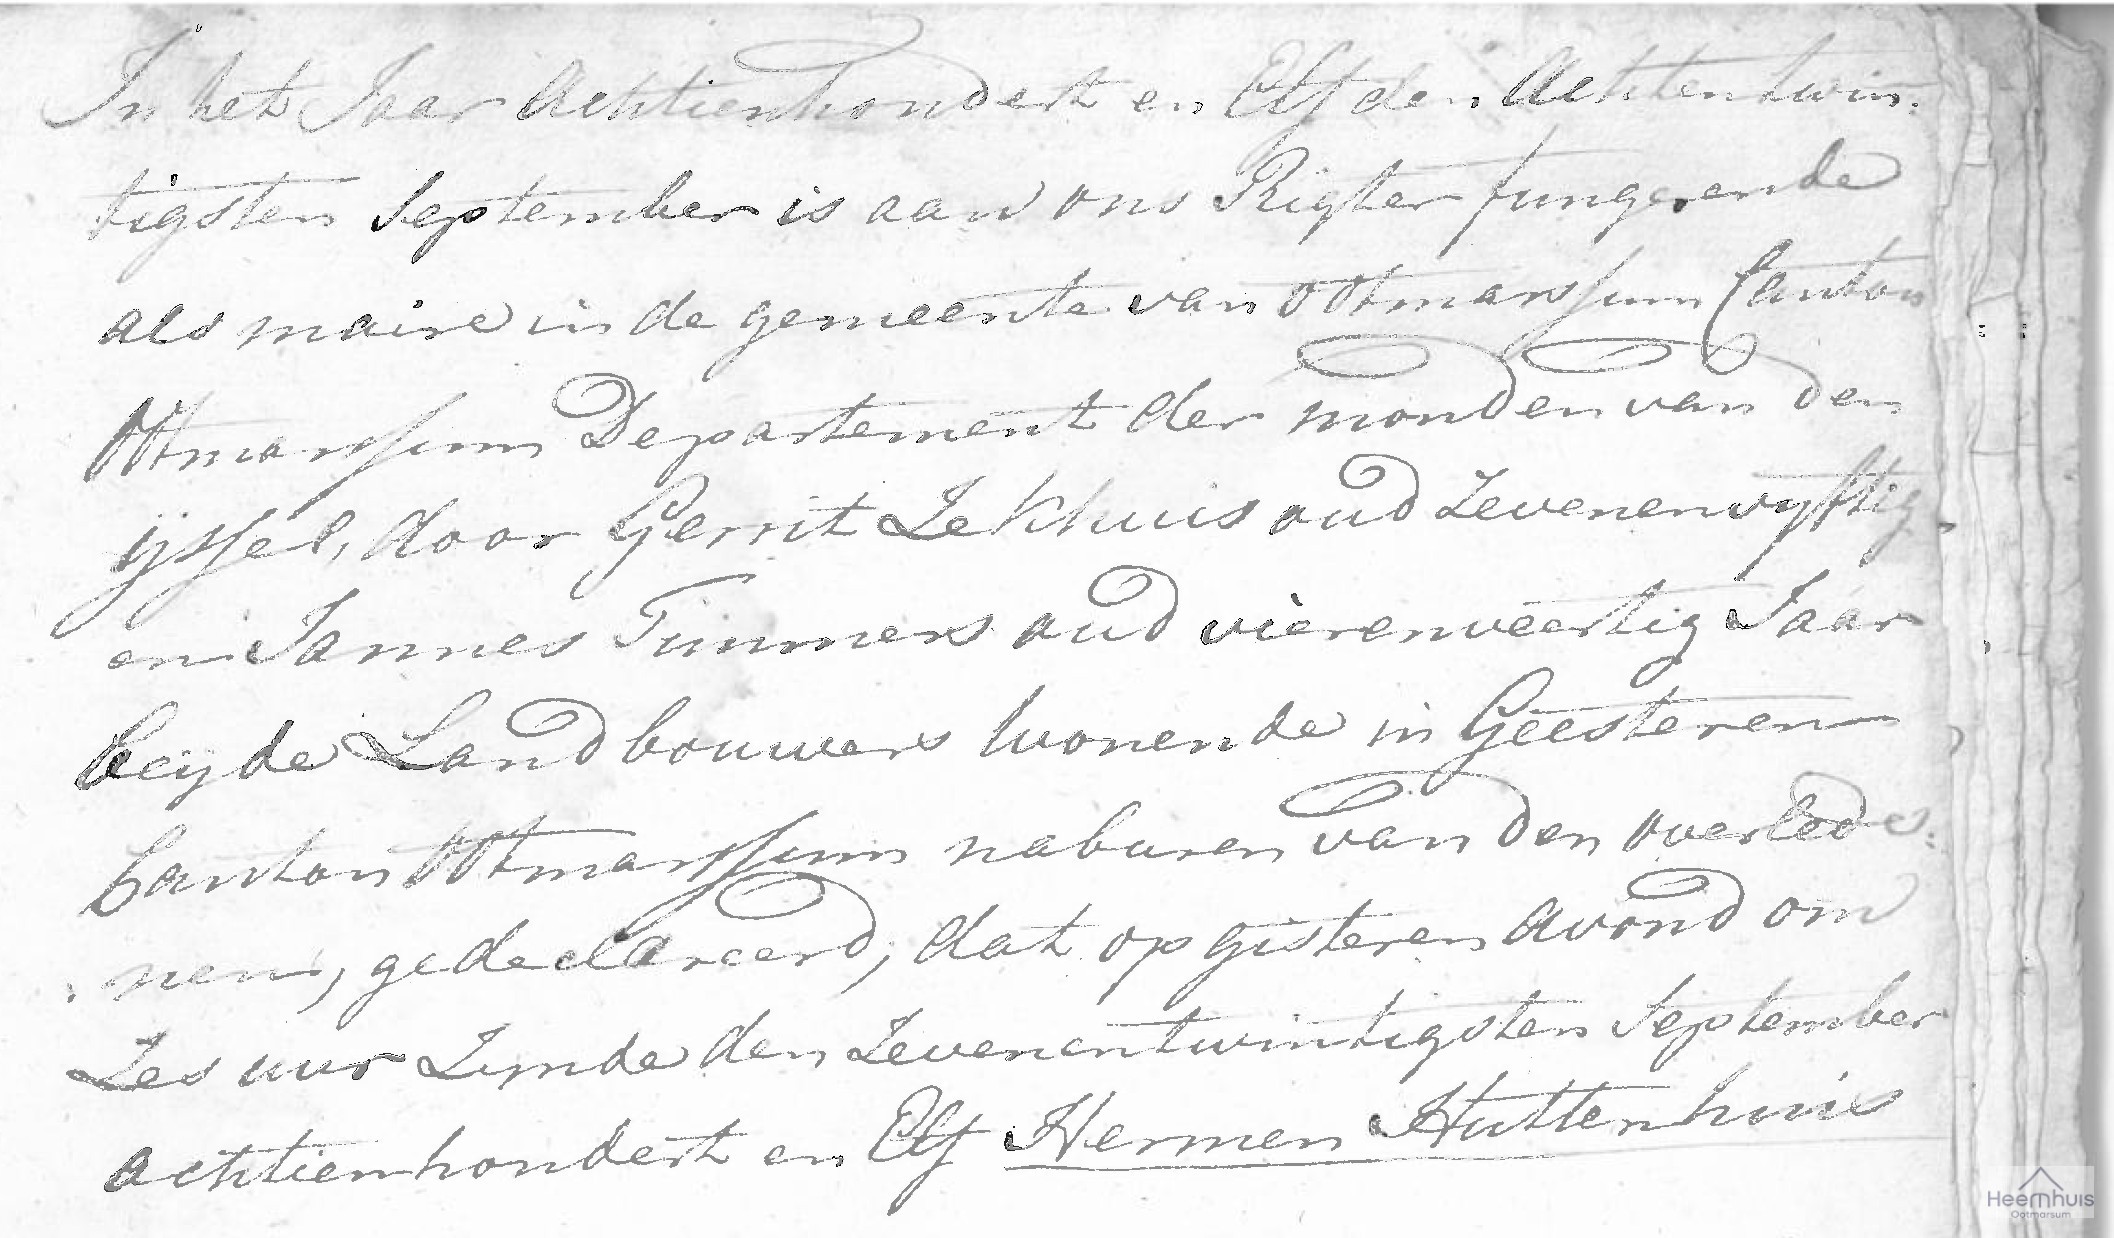 In het Jaar Achtienhondert en Elf den Achtentwin:
tigsten September is aan ons Rigter fungerende
als maire in de gemeente van Ootmarssum Canton
Ootmarssum Departement der monden van den
ijssel, door Gerrit Lekhuis oud Zevenenvyftig
en Jannes Timmers oud vierenveertig Jaar
beijde Landbouwers wonende in Geesteren
Canton Ootmarssum naburen van den overlede:
: nen, gedeclareerd, dat op gisteren avond om
Zes uur Zynde den Zevenentwintigsten September
achtienhondert en Elf Hermen Huttenhuis
Heemhuis
Ootmarsum